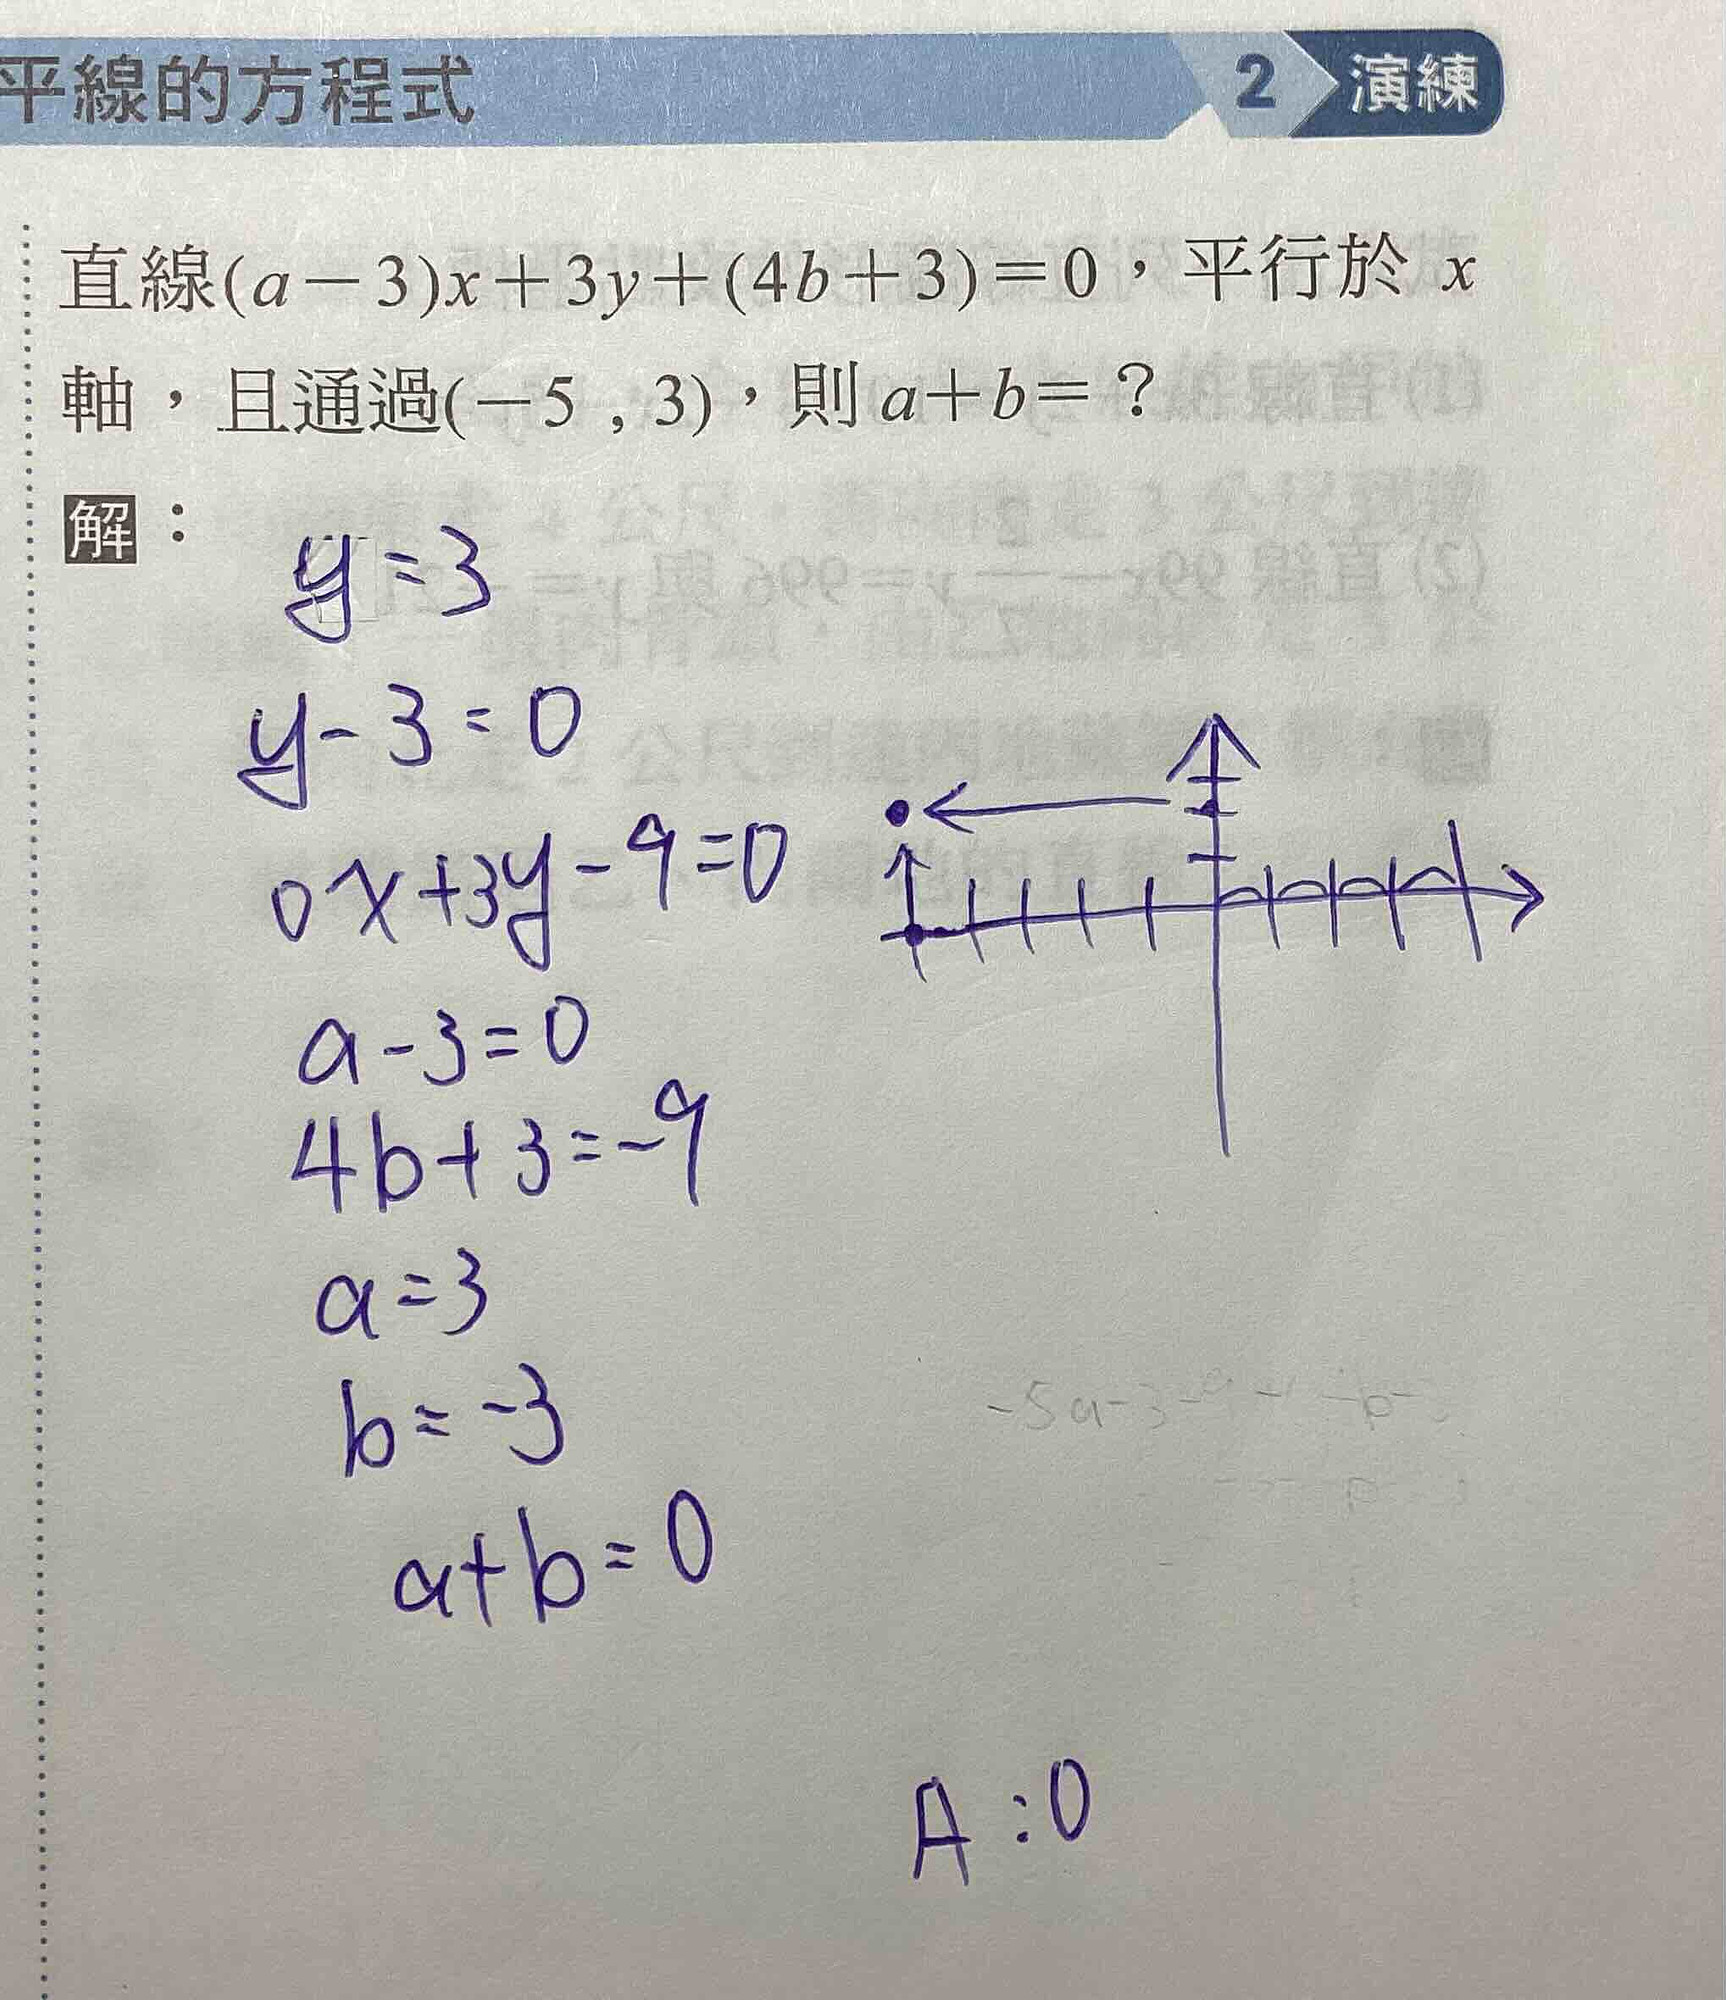 平線的方程式 2 演練
直線(a－3)x＋3y＋(4b＋3)＝0，平行於 x
軸，且通過(－5 , 3)，則a＋b＝？
解：
y=3
y-3=0
0x+3y-9=0
a-3=0
4b+3=-9
a=3
b=-3
a+b=0
A:0